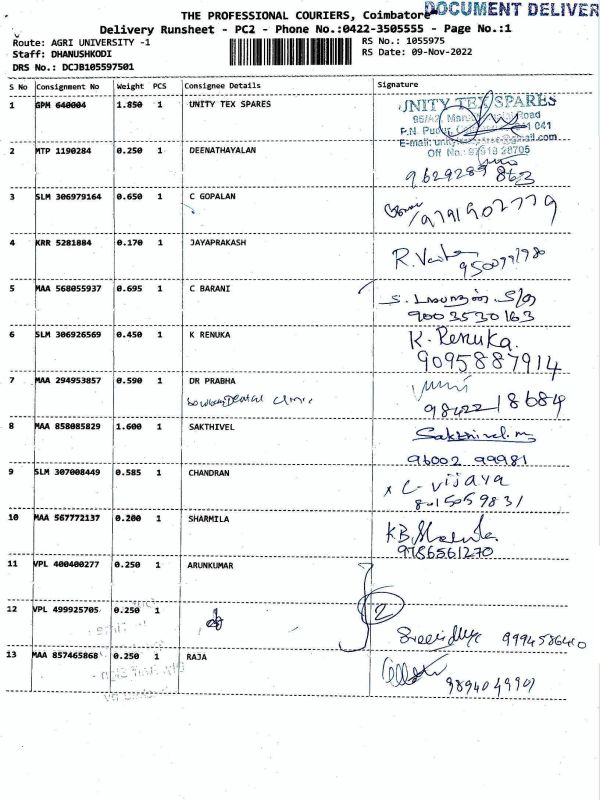 THE PROFESSIONAL COURIERS, Coimbatore
DOCUMENT DELIVER
Delivery Runsheet - PC2 - Phone No.:0422-3505555 - Page No.:1
Route: AGRI UNIVERSITY -1
RS No.: 1055975
Staff: DHANUSHKODI
RS Date: 09-Nov-2022
DRS No.: DCJB105597501
S No Consignment No Weight PCS Consignee Details Signature
1 GPM 640004 1.850 1 UNITY TEX SPARES
UNITY TEX SPARES
Road
P.N. Pudur, 041
E-mail:
Off No.: 28705
2 MTP 1190284 0.250 1 DEENATHAYALAN
9629289 863
3 SLM 306979164 0.650 1 C GOPALAN
9791902779
4 KRR 5281884 0.170 1 JAYAPRAKASH
5 MAA 568055937 0.695 1 C BARANI
9003530163
6 SLM 306926569 0.450 1 K RENUKA K. Renuka.
9095887914
7 MAA 294953857 0.590 1 DR PRABHA
Dental clinic
98422 18684
8 MAA 858085829 1.600 1 SAKTHIVEL Sakthivel.m
96002 99981
9 SLM 307008449 0.585 1 CHANDRAN x C- vijaya
8015059831
10 MAA 567772137 0.200 1 SHARMILA
9786561270
11 VPL 400400277 0.250 1 ARUNKUMAR
12 VPL 499925705 0.250 1 2
9994586410
13 MAA 857465868 0.250 1 RAJA
9894049901